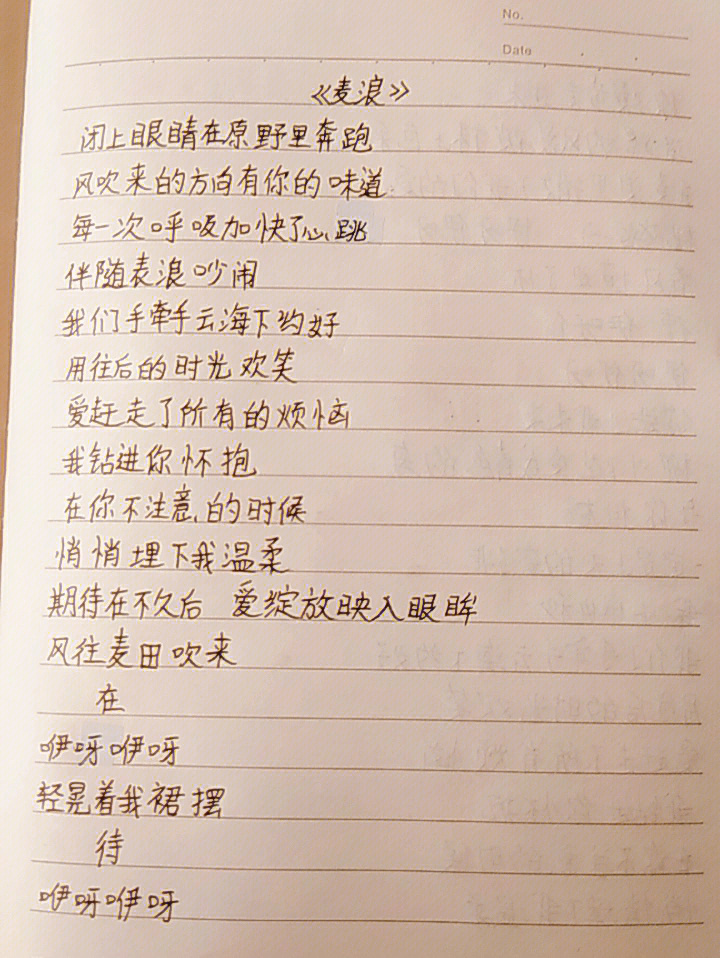 No.
Date
《麦浪》
闭上眼睛在原野里奔跑
风吹来的方向有你的味道.
每一次呼吸加快了心跳
伴随麦浪吵闹
我们手牵手云海下约好
用往后的时光欢笑
爱赶走了所有的烦恼
我钻进你怀抱
在你不注意的时候
悄悄埋下我温柔
期待在不久后 爱绽放映入眼眸
风往麦田吹来
在
咿呀咿呀
轻晃着我裙摆
待
咿呀咿呀